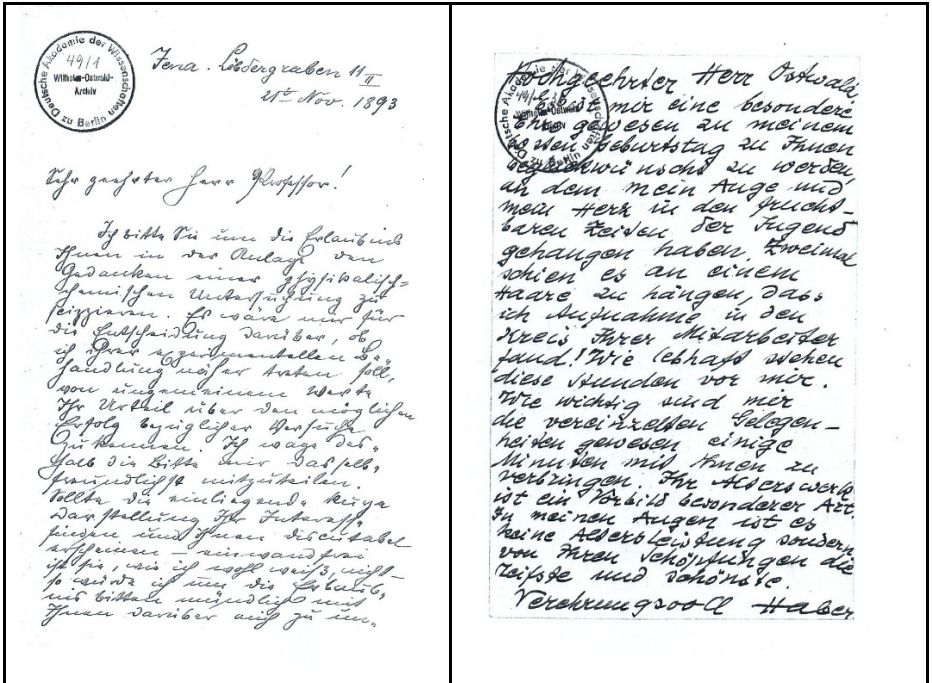 Deutsche Akademie der Wissenschaften zu Berlin
49/1
Wilhelm-Ostwald-
Archiv
Jena. Löbdergraben 11 II
21te Nov. 1893
Sehr geehrter Herr Professor!
Ich bitte Sie um die Erlaubnis
Ihnen in der Anlage den
Gedanken einer physikalisch-
chemischen Untersuchung zu
skizzieren. Es wäre mir für
die Entscheidung darüber, ob
ich ihrer experimentellen Be-
handlung näher treten soll,
von ungemeinem Werte
Ihr Urteil über den möglichen
Erfolg bezüglicher Versuche
zu kennen. Ich wage des-
halb die Bitte mir dasselbe
freundlichst mitzuteilen.
Sollte die einliegende kurze
Darstellung Ihr Interesse
finden und Ihnen discutabel
erscheinen – einwandfrei
ist sie, wie ich wohl weiß, nicht –
so würde ich um die Erlaub-
nis bitten mündlich mit
Ihnen darüber auch zu
Deutsche Akademie der Wissenschaften zu Berlin
Wilhelm-Ostwald-
Archiv
Hochgeehrter Herr Ostwald
Es ist mir eine besondere
Ehre gewesen zu meinem
Geburtstag zu Ihnen
beglückwünscht zu werden,
an dem mein Auge und
mein Herz in den frucht-
baren Zeiten der Jugend
gehangen haben. Zweimal
schien es an einem
Haare zu hängen, dass
ich Aufnahme in den
Kreis Ihrer Mitarbeiter
fand! Wie lebhaft stehen
diese Stunden vor mir.
Wie wichtig sind mir
die vereinzelten Gelegen-
heiten gewesen einige
Minuten mit Ihnen zu
verbringen. Ihr Alterswerk
ist ein Vorbild besonderer Art.
In meinen Augen ist es
keine Altersleistung sondern
von Ihren Schöpfungen die
reifste und schönste.
Verehrungsvoll Haber